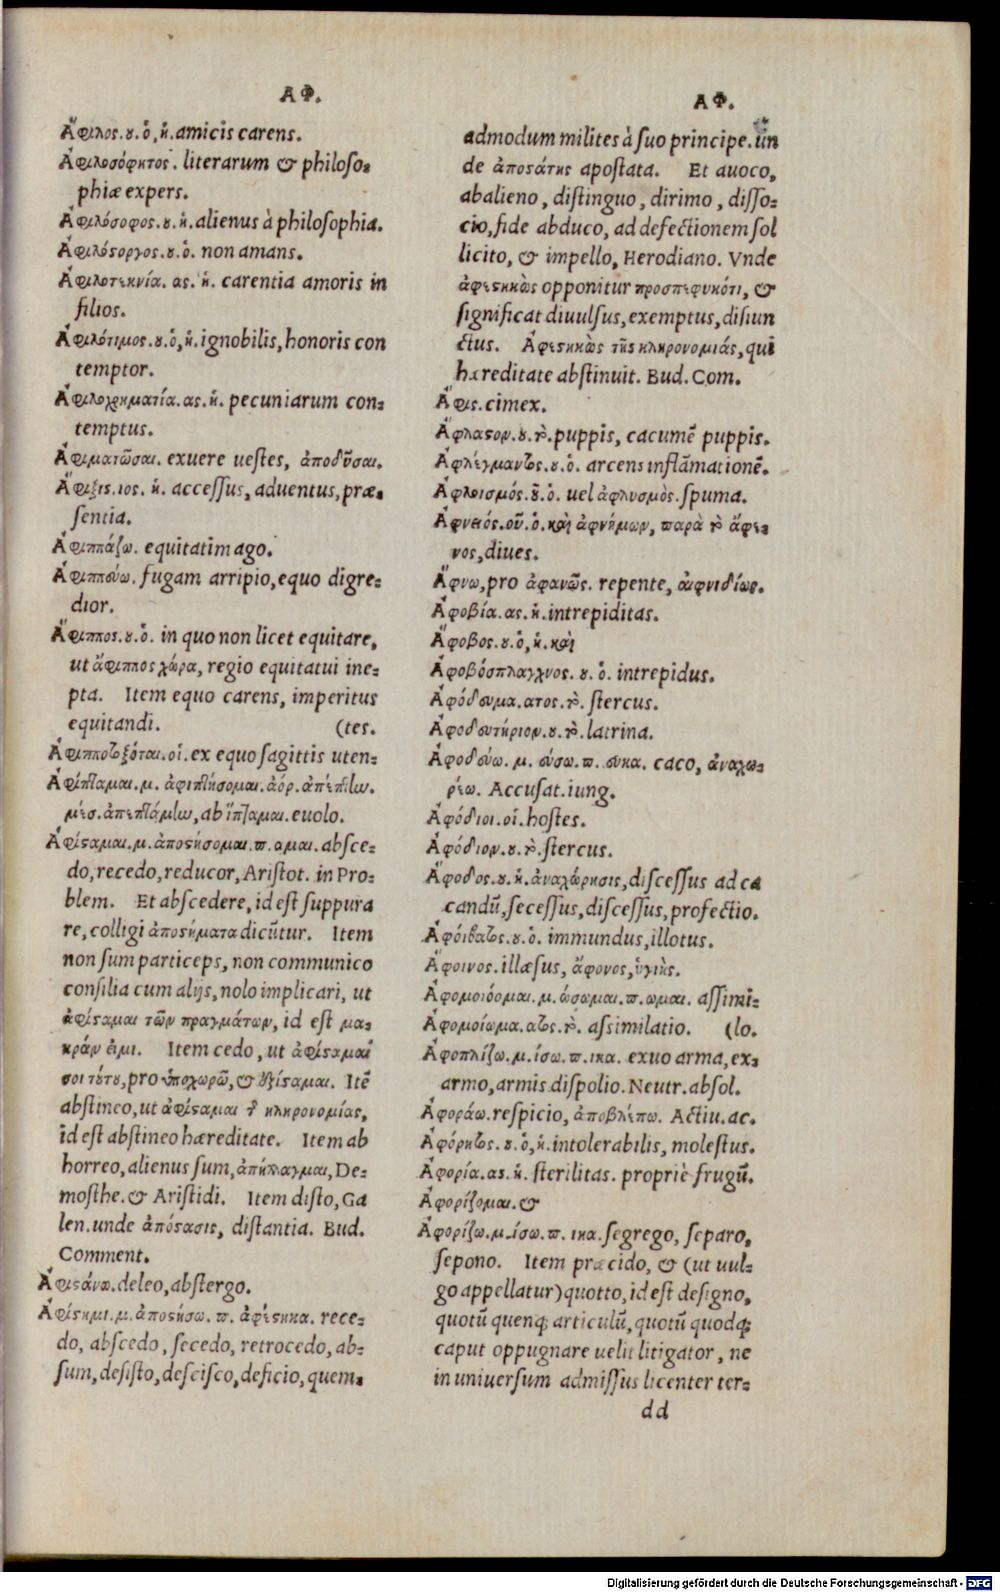 ΑΦ.
Ἄφιλος.ου.ὁ,ἡ.amicis carens.
Ἀφιλοσόφητος. literarum & philoso-
phiæ expers.
Ἀφιλόσοφος.ου.ἡ.alienus à philosophia.
Ἀφιλόστοργος.ου.ὁ. non amans.
Ἀφιλοτεκνία. ας.ἡ. carentia amoris in
filios.
Ἀφιλότιμος.ου.ὁ,ἡ.ignobilis, honoris con
temptor.
Ἀφιλοχρηματία.ας.ἡ. pecuniarum con-
temptus.
Ἀφιματῶσαι. exuere uestes, ἀποδῦσαι.
Ἄφιξις.ιος. ἡ. accessus, aduentus, præ-
sentia.
Ἀφιππάζω. equitatim ago.
Ἀφιππεύω. fugam arripio, equo digre-
dior.
Ἄφιππος.ου.ὁ. in quo non licet equitare,
ut ἄφιππος χώρα, regio equitatui ine-
pta. Item equo carens, imperitus
equitandi. (tes.
Ἀφιπποτοξόται.οἱ. ex equo sagittis uten-
Ἀφίπταμαι.μ. ἀφιπτήσομαι.ἀόρ.ἀπέπτην.
μέσ.ἀπεπτάμην, ab ἵπταμαι. euolo.
Ἀφίσταμαι.μ.ἀποστήσομαι.π.αμαι.absce-
do, recedo, reducor, Aristot. in Pro-
blem. Et abscedere, id est suppura
re, colligi ἀποστήματα dicũtur. Item
non sum particeps, non communico
consilia cum alijs, nolo implicari, ut
ἀφίσταμαι τῶν πραγμάτων, id est μα-
κράν εἰμι. Item cedo, ut ἀφίσταμαί
σοι τούτου, pro ὑποχωρῶ, & ἐξίσταμαι. Itẽ
abstineo, ut ἀφίσταμαι τῆς κληρονομίας,
id est abstineo hæreditate. Item ab
horreo, alienus sum, ἀπήλλαγμαι, De-
mosthe. & Aristidi. Item disto, Ga
len. unde ἀπόστασις, distantia. Bud.
Comment.
Ἀφιστάνω. deleo, abstergo.
Ἀφίστημι.μ.ἀποστήσω. π. ἀφέστηκα. rece-
do, abscedo, secedo, retrocedo, ab-
sum, desisto, descisco, deficio, quem-
ΑΦ.
admodum milites à suo principe. un
de ἀποστάτης apostata. Et auoco,
abalieno, distinguo, dirimo, disso-
cio, fide abduco, ad defectionem sol
licito, & impello, Herodiano. Vnde
ἀφεστηκὼς opponitur προσπεφυκότι, &
significat diuulsus, exemptus, disiun
ctus. Ἀφεστηκὼς τῆς κληρονομιάς, qui
hæreditate abstinuit. Bud. Com.
Ἄφις. cimex.
Ἄφλαστον.ου.τὸ.puppis, cacumẽ puppis.
Ἀφλέγμαντος.ου.ὁ. arcens inflãmationẽ.
Ἀφλοισμός.οῦ.ὁ. uel ἀφλυσμὸς. spuma.
Ἀφνειός.οῦ.ὁ.καὶ ἀφνήμων, παρὰ τὸ ἄφε-
νος, diues.
Ἄφνω, pro ἀφανῶς. repente, αἰφνιδίως.
Ἀφοβία.ας.ἡ.intrepiditas.
Ἄφοβος.ου.ὁ,ἡ.καὶ
Ἀφοβόσπλαγχνος.ου.ὁ. intrepidus.
Ἀφόδευμα.ατος.τὸ. stercus.
Ἀφοδευτήριον.ου.τὸ.latrina.
Ἀφοδεύω. μ. εύσω. π. ευκα. caco, ἀναχω-
ρέω. Accusat. iung.
Ἀφόδιοι.οἱ.hostes.
Ἀφόδιον.ου.τὸ.stercus.
Ἄφοδος.ου.ἡ.ἀναχώρησις, discessus ad ca
candũ, secessus, discessus, profectio.
Ἀφοίβατος.ου.ὁ. immundus, illotus.
Ἄφοινος. illæsus, ἄφονος, ὑγιής.
Ἀφομοιόομαι.μ.ώσωμαι.π.ωμαι. assimi-
Ἀφομοίωμα.ατος.τὸ. assimilatio. (lo.
Ἀφοπλίζω.μ.ίσω.π.ικα. exuo arma, ex-
armo, armis dispolio. Neutr. absol.
Ἀφοράω. respicio, ἀποβλέπω. Actiu. ac.
Ἀφόρητος.ου.ὁ,ἡ.intolerabilis, molestus.
Ἀφορία.ας.ἡ. sterilitas. propriè frugũ.
Ἀφορίζομαι. &
Ἀφορίζω.μ.ίσω.π. ικα. segrego, separo,
sepono. Item præcido, & (ut uul-
go appellatur) quotto, id est designo,
quotũ quenq; articulũ, quotũ quodq;
caput oppugnare uelit litigator, ne
in uniuersum admissus licenter ter-
dd
Digitalisierung gefördert durch die Deutsche Forschungsgemeinschaft - DFG